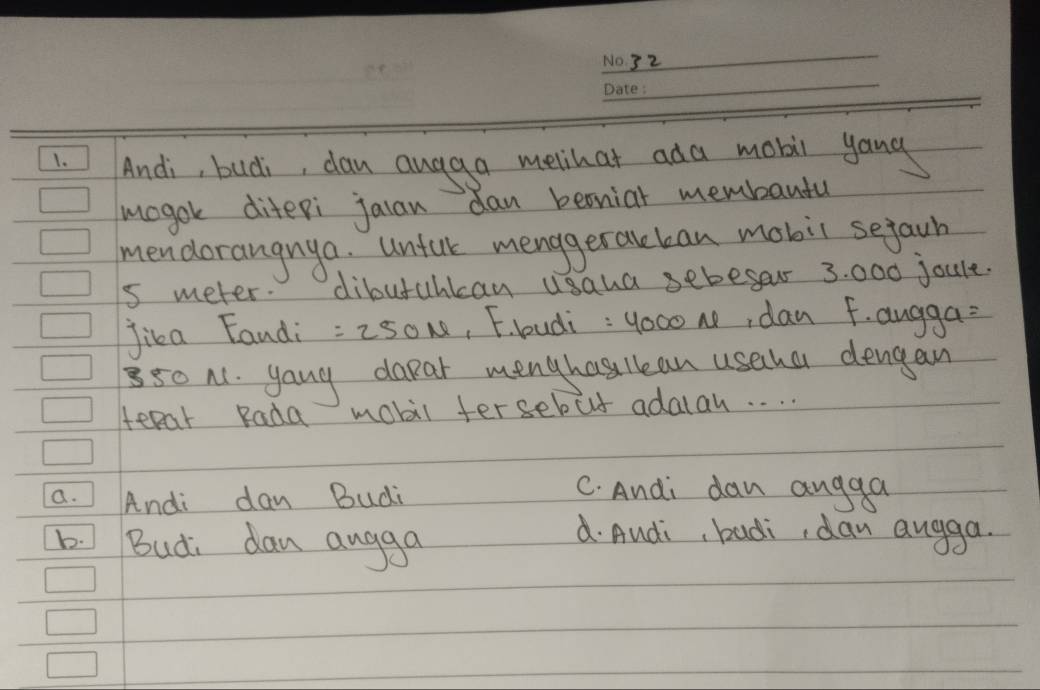 No. 32
Date:
1. Andi, budi, dan angga melihat ada mobil yang
mogok ditepi jalan dan berniat membantu
mendorangnya. untuk menggerakkan mobil sejauh
5 meter. dibutuhkan usaha sebesar 3.000 joule.
jika Fandi = 250 N, F.budi : 4000 N, dan F.angga =
350 N. yang dapat menghasilkan usaha dengan
tepat pada mobil tersebut adalah ....
a. Andi dan Budi c. Andi dan angga
b. Budi dan angga d. Andi, budi, dan angga.